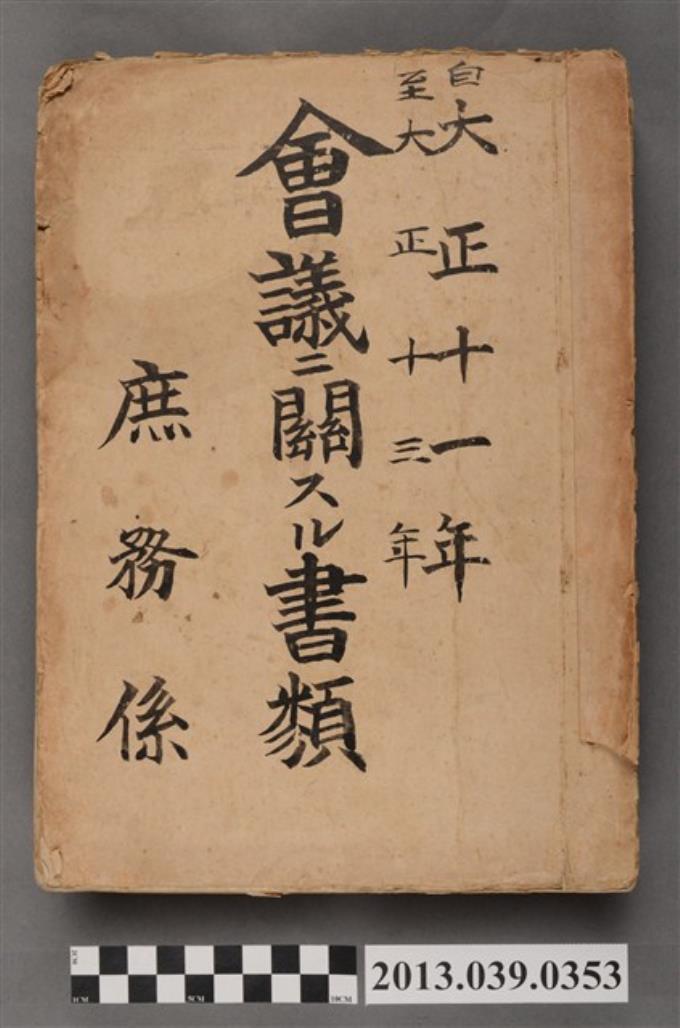 自大正十一年
至大正十三年
會議ニ關スル書類
庶務係
2CM
1CM
5CM
10CM
2013.039.0353